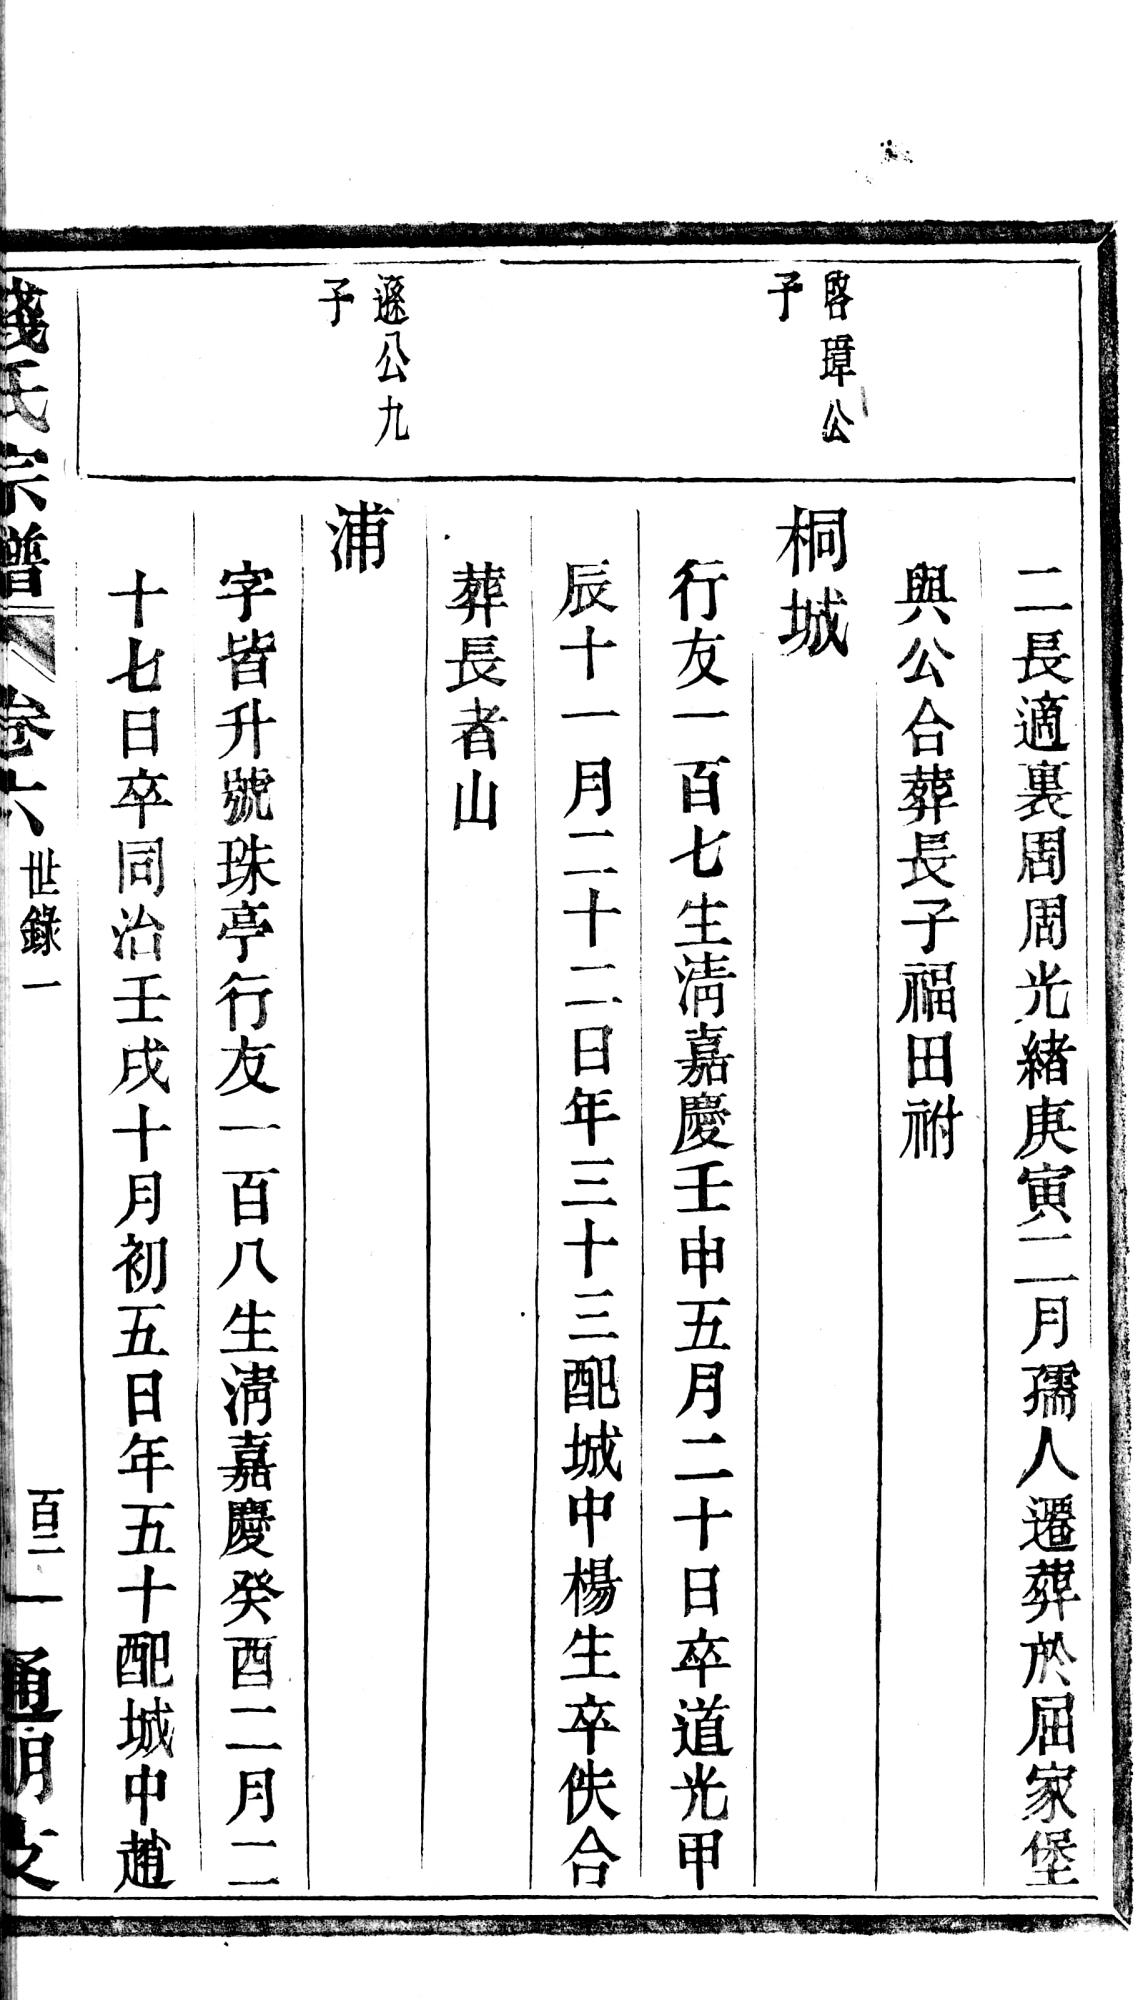 二長適裏周周光緒庚寅二月孺人遷葬於屈家堡
與公合葬長子福田祔
啓璋公
子
桐城
行友一百七生淸嘉慶壬申五月二十日卒道光甲
辰十一月二十二日年三十三配城中楊生卒佚合
葬長者山
遜公九
子
浦
字皆升號珠亭行友一百八生淸嘉慶癸酉二月二
十七日卒同治壬戌十月初五日年五十配城中趙
錢氏宗譜 卷六 世錄一 百二 通明支